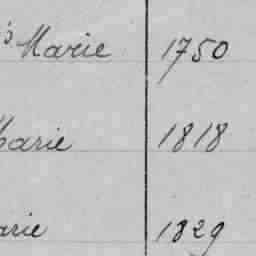 Marie 1750
Marie 1818
arie 1829